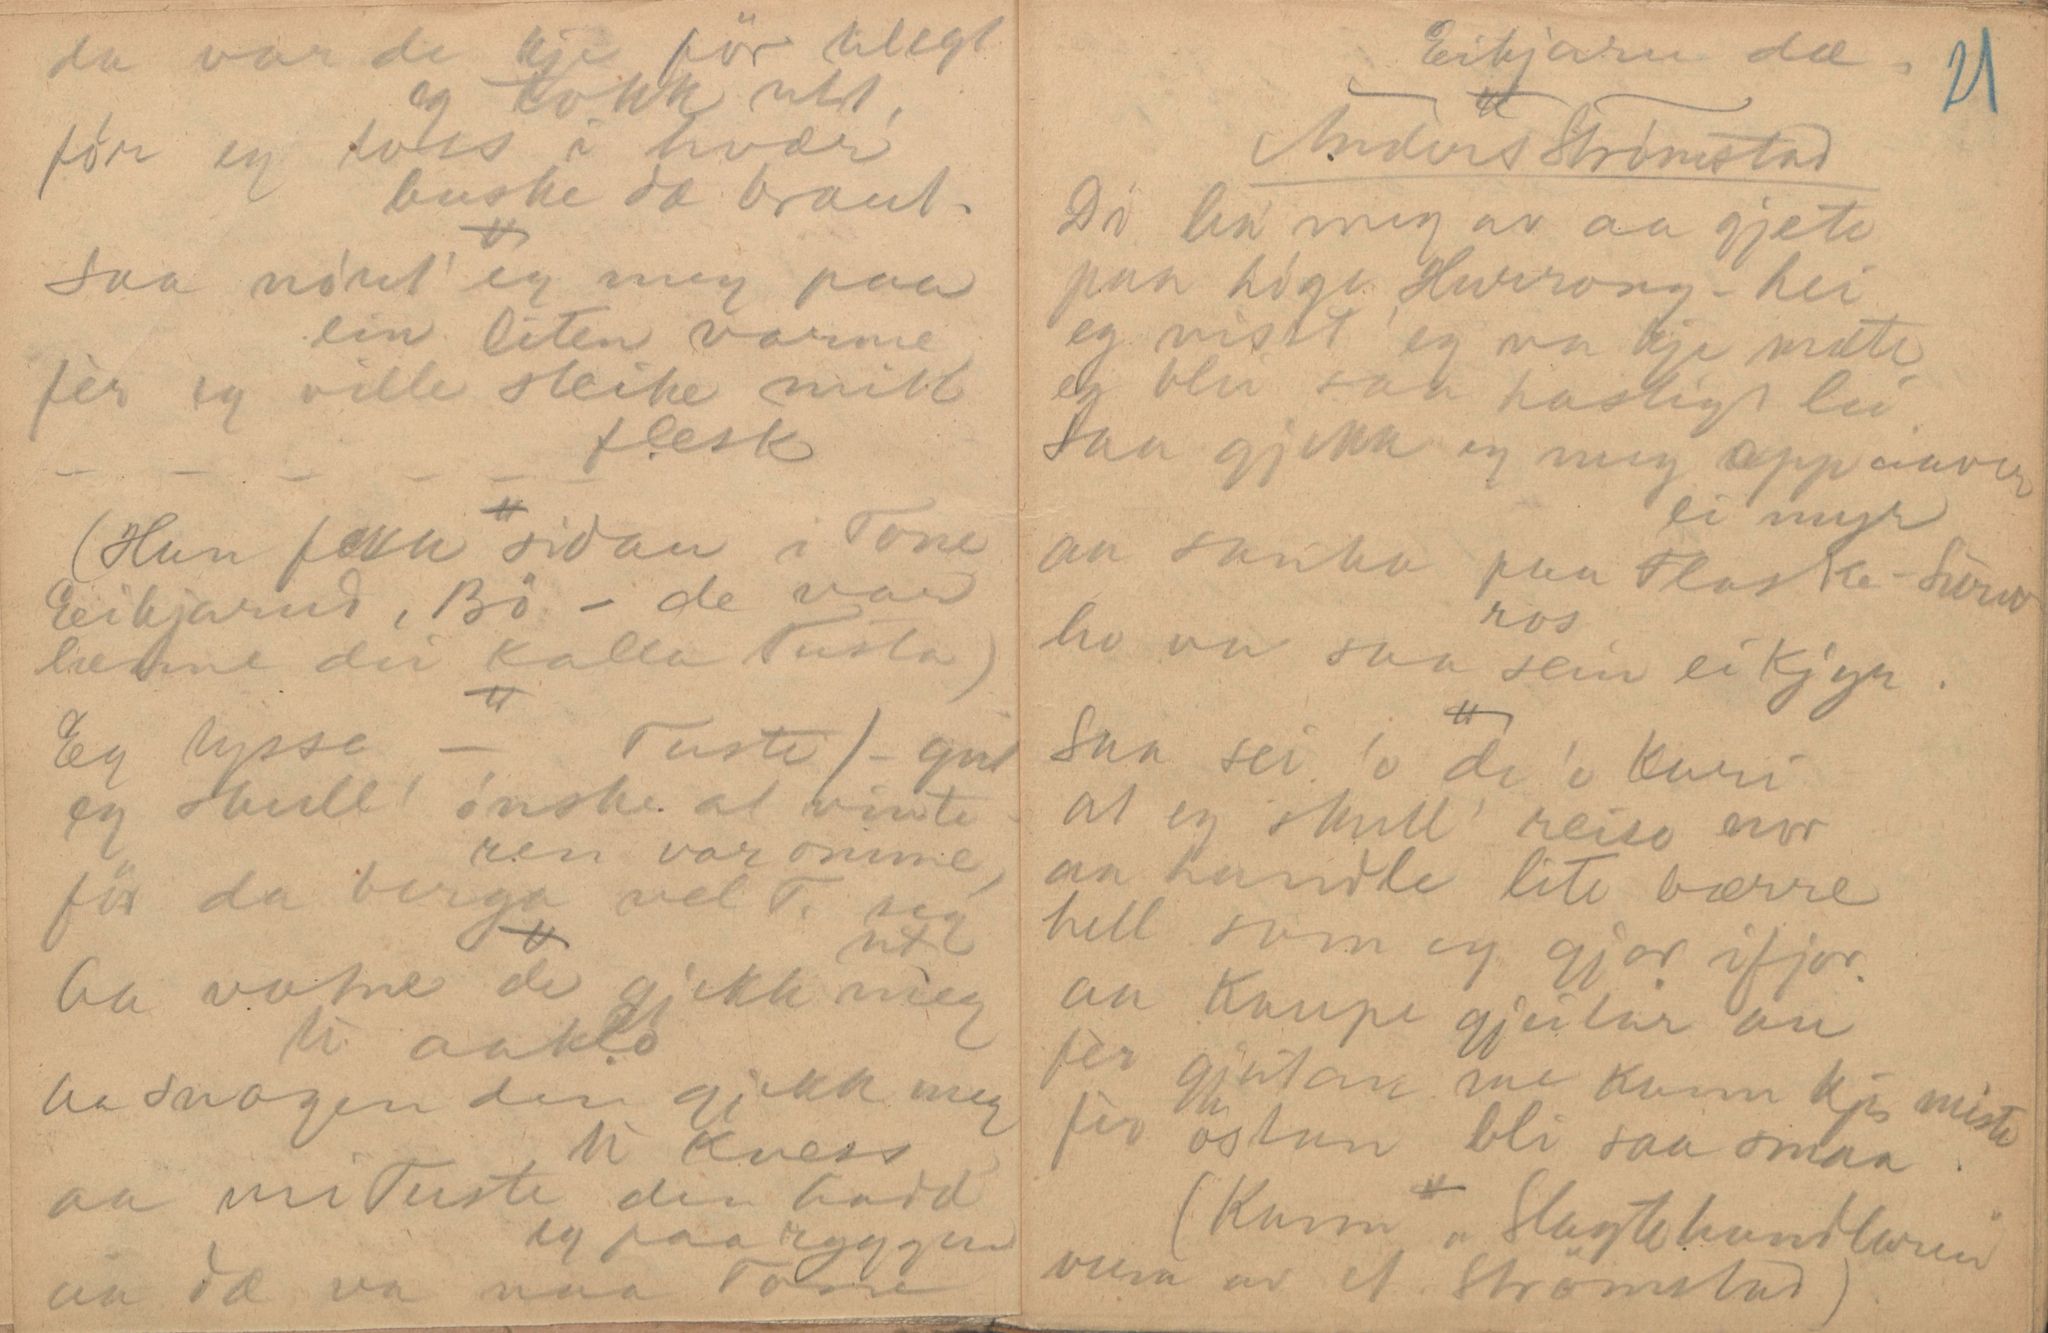 da var de kje för tilegt
eg tokk utt,
för eg kveis i hvær
buske då braut.
Saa nört' eg meg paa
ein liten varme
fér eg ville steike mitt
flesk
– – – – – –
(Hun fekk sidan i Tone
Eikjarud, Bö – de var
henne dei kalla Tusta)
Eg lysse – Tuste / – gut
eg skull' ónske at vinte-
ren var omme,
för da berga vel T. seg
utt
Aa votne de gjekk meg
ti aaklo
Aa snogen den gjekk meg
ti kness
aa mi Tuste den hadd
eg paa ryggen
aa dæ va naa Tone
Eikjaru dæ.
21
Anders Strömstad
Di lei meg av aa gjete
paa höge Hurrong-hei
eg visst' eg va kje mæte
eg blei saa hastigt lei
Saa gjekk eg meg opp iaaver
ei myr
aa sanka paa Flaske-Siurav
ros
ho va saa sein ei Kjyr.
Saa sei 'o de 'o Kari
at eg skull' reise nor
aa handle lite bærre
hell som eg gjor ifjor.
aa kaupe gjeitar an
fér gjeitan me kann kje miste
fér östan bli saa smaa.
(Kann " Slagtehandleren
vera av A. Strömstad)